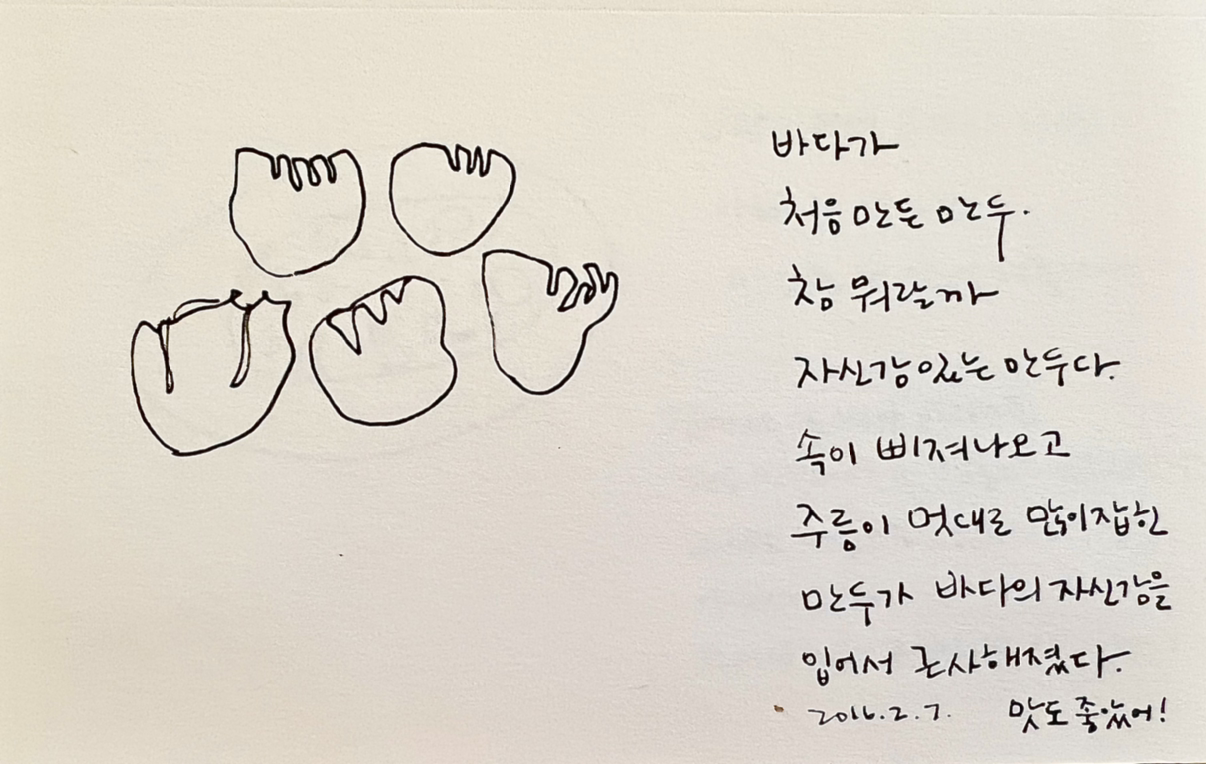 바다가
처음 만든 만두.
참 뭐랄까
자신감있는 만두다.
속이 삐져나오고
주름이 멋대로 많이잡힌
만두가 바다의 자신감을
입어서 근사해졌다.
2016.2.7. 맛도 좋았어!